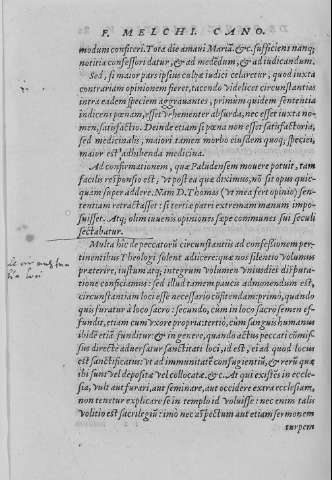 F. MELCHI. CANO.
modum confiteri. Tota die amaui Mariã. &c. sufficiens nanq;
notitia confessori datur, & ad medẽdum, & ad iudicandum.
Sed, si maior pars ipsius culpæ iudici celaretur, quod iuxta
contrariam opinionem fieret, tacendo videlicet circunstantias
intra eadem speciem aggrauantes, primùm quidem sententia
indicens pœnam, esset vehementer absurda, nec esset iuxta no-
men, satisfactio. Deinde etiam si pœna non esset satisfactoria,
sed medicinalis, maiori tamen morbo eiusdem quoq; speciei,
maior est adhibenda medicina.
Ad confirmationem, quæ Paludensem mouere potuit, tam
facilis responsio est, vt post ea quæ diximus, nõ sit opus quic-
quàm super addere. Nam D. Thomas (vt mea fert opinio) sen-
tentiam retractasset: si tertiæ parti extremam manum impo-
suisset. Atq; olim iuuenis opinionẽ sæpe communes sui seculi
sectabatur.
Multa hîc de peccatorũ circunstantiis ad confessionem per-
tinentibus Theologi solent adiicere: quæ nos silentio volumus
præterire, iustum atq; integrum volumen vniusdiei disputa-
tione conficiamus: sed illud tamen paucis admonendum est,
circunstantiam loci esse necessariò cõfitendam: primò, quando
quis furatur à loco sacro: secundo, cum in loco sacro semen ef-
fundit, etiam cum vxore propria: tertiò, cùm sanguis humanus
ibidẽ etiã funditur: & in genere, quando actus peccati cõmis-
sus directè aduersatur sanctitati loci, id est, ei ad quod locus
est sanctificatus: vt ad immunitatẽ confugientiũ, & rerũ quæ
ibi sunt vel depositæ vel collocatæ. &c. At qui existẽs in eccle-
sia, vult aut furari, aut seminare, aut occidere extra ecclesiam,
non tenetur explicare se in templo id voluisse: nec enim talis
volitio est sacrilegiũ: imò nec aspectum aut etiam sermonem
turpem